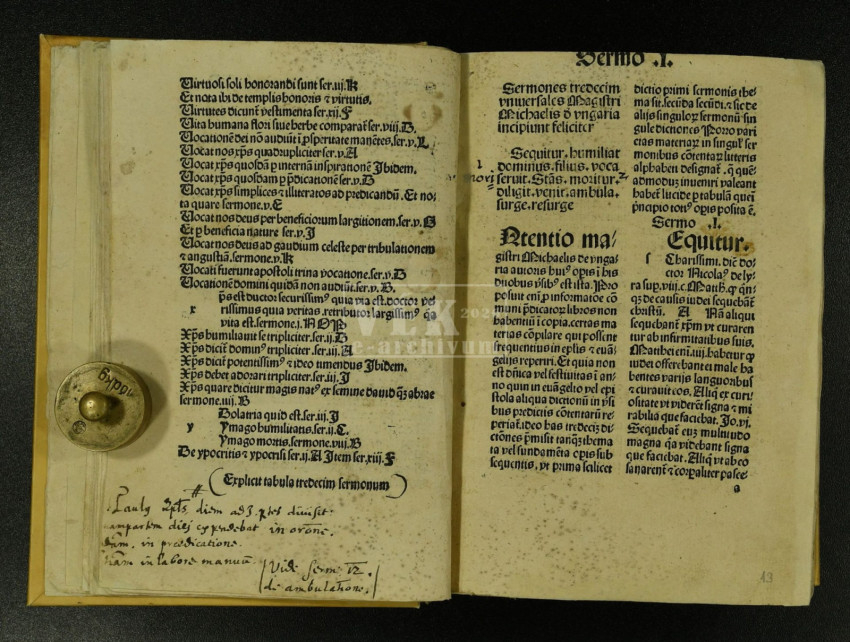 Virtuosi soli honorandi sunt ser.iij.K
Et nota ibi de templis honoris ⁊ virtutis.
Virtutes dicunt̃ vestimenta ser.xij.F
Vita humana flori siue herbe comparat᷑ ser.viij.D.
Vocationẽ dei nõ audiũt ĩ ꝓsperitate manẽtes,ser.v.L
Vocat nos xp̃s quadrupliciter ser.v.A
Vocat xp̃s quosdã ꝑ internã inspirationẽ Ibidem.
Vocat xp̃s quosdam ꝑ p̃dicationẽ ser.v.D
Vocat xp̃s simplices ⁊ illiteratos ad predicandũ. Et no-
ta quare sermone.v.E
Vocat nos deus per beneficiorum largitionem.ser.v.
Et ꝑ beneficia nature ser.v.I
Vocat nos deus ad gaudium celeste per tribulationem
⁊ angustiã.sermone.v.K
Vocati fuerunt apostoli trina vocatione.ser.v.D
Vocationẽ domini quidã non audiũt.ser.v.
p̃s est ductor securissimꝰ quia via est.doctor ve-
x rissimus quia veritas.retributor largissimꝰ qa
vita est.sermone.j.
Xp̃s humiliauit se tripliciter ser.ij.D
Xp̃s dicit᷑ dominꝰ tripliciter ser.iij.A
Xp̃s dicit᷑ potentissimꝰ ⁊ ideo timendus Ibidem.
Xp̃s debet adorari tripliciter ser.iij.I
Xp̃s quare dicitur magis natꝰ ex semine dauid q̃ꝫ abrae
sermone.iiij.B
Dolatria quid est.ser.ij.I
y Ymago humilitatis ser.ij.C.
Ymago mortis.sermone.viij.B
De ypocritis ⁊ ypocrisi ser.ij.A Item ser.xiij.F
(Explicit tabula tredecim sermonum)
diem ad 3 ptes diuisit
expendebat in orõne.
in prædicatione.
in labore manuũ.
Vide serme 12.
de ambulatione.
Sermo .I.
Sermones tredecim
vniuersales Magistri
Michaelis d̓ vngaria
incipiunt feliciter
Sequitur. humiliat
dominus. filius. voca
seruit. Stãs. moritur.
diligit. venit. ambula.
surge. resurge
Ntentio ma/
gistri Michaelis de vnga-
ria autoris huiꝰ opis ĩ his
duobus ꝟsibꝰ est ista. Pro
posuit enĩ ꝓ informatõe cõ
muni p̃dicatoꝝ libros non
habentiũ ĩ copia.certas ma
terias cõpilare qui possent
frequentius in epl̃is ⁊ euã-
gelijs reperiri. Et quia non
est dñica vel festiuitas ĩ an
no quin in euãgelio vel epi
stola aliqua dictionũ in ṽsi
bus predictis cõtentarũ re-
periat᷑.ideo has tredecĩ di-
ctiones p̃misit tanq̃ꝫ thema
ta vel fundamẽta opis sub
sequentis, vt prima scilicet
dictio primi sermonis the-
ma sit.secũda secũdi.⁊ sic de
alijs singuloꝝ sermonũ sin
gule dictiones Porro vari
as materias in singul̓ ser
monibus cõtentas litteris
alphabeti designat. q̃ que-
admodũ inueniri valeant
habet᷑ lucide ꝑ tabulã quei
p̃ncipio totiꝰ opis posita ẽ.
Sermo .I.
Equitur.
s Charissimi. dic̃ do-
ctor Nicolaꝰ de ly-
ra sup.viij.c.Matth.
qꝫ de causis iudei sequebãt᷑
christũ. A Nã aliqui
sequebant᷑ xp̃m vt curaren
tur ab infirmitatibus suis.
Matthei enĩ.iiij.habetur
iudei offerebant ei male ha
bentes varijs languoribus
⁊ curauit eos. Aliq̃ ex curi
ositate vt viderẽt signa ⁊ mi
rabilia que faciebat. Jo.vj.
Sequebat᷑ eum multitudo
magna q̃a videbant signa
que faciebat. Aliq̃ vt ab eo
sanarent᷑ ⁊ corꝑaliter pasce-
a
13
VEX 202
e-archivum